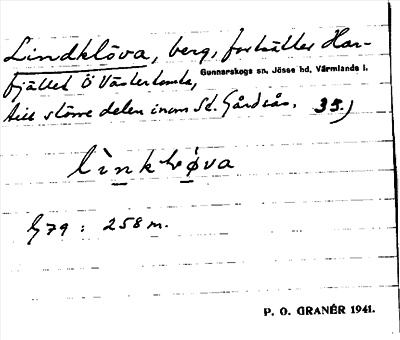 Lindklöva, berg, fortsätter Har-
fjället Ö Västerlanda, Gunnarskogs sn, Jösse hd, Värmlands l.
till större delen inom St. Gårdsås. 35.)
G 79 : 258 m.
P. O. GRANÉR 1941.